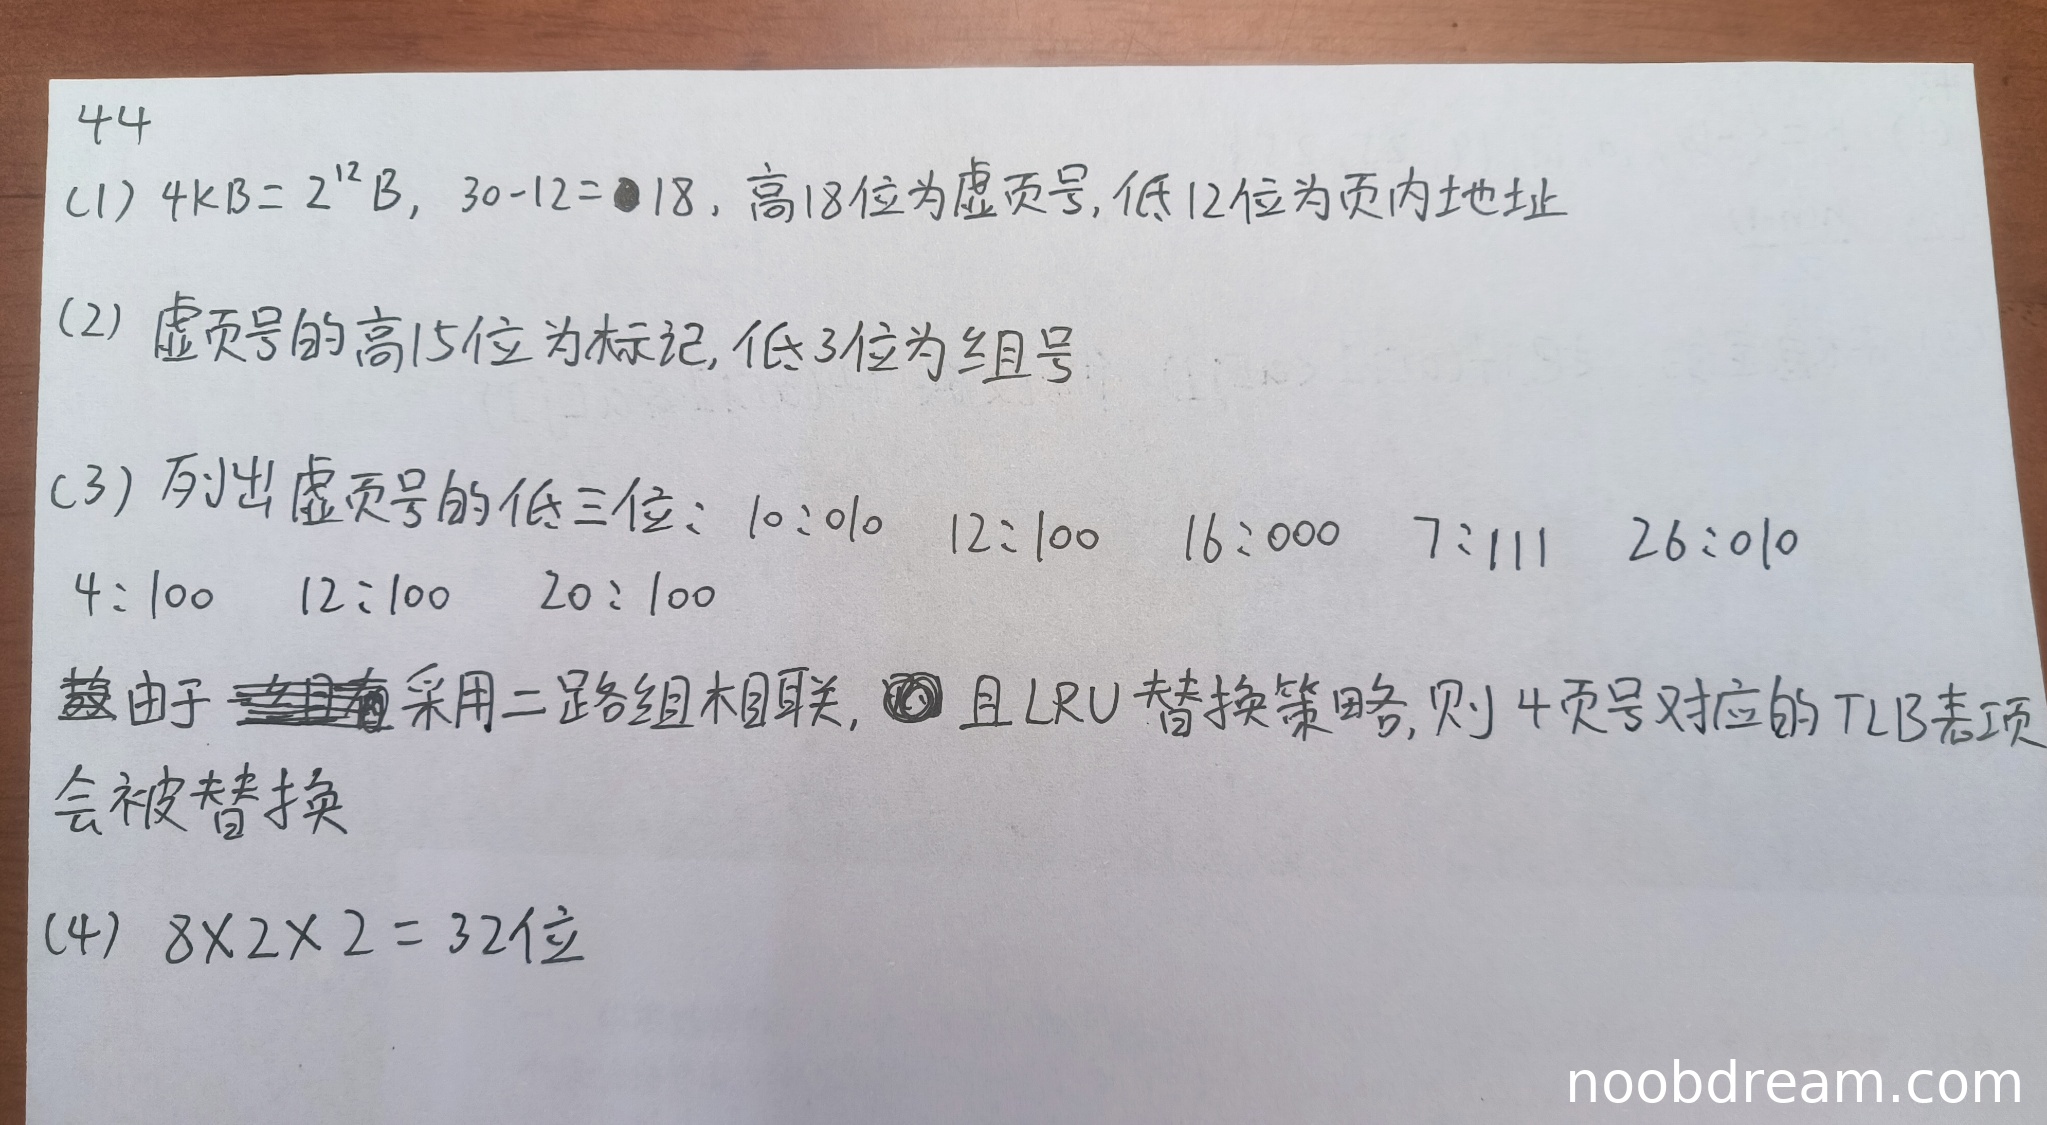 44
(1) 4KB = 2¹²B, 30-12= 18, 高18位为虚页号, 低12位为页内地址
(2) 虚页号的高15位为标记, 低3位为组号
(3) 列出虚页号的低三位: 10:010 12:100 16:000 7:111 26:010
4:100 12:100 20:100
由于 采用二路组相联, 且LRU替换策略, 则4页号对应的TLB表项
会被替换
(4) 8×2×2=32位
noobdream.com